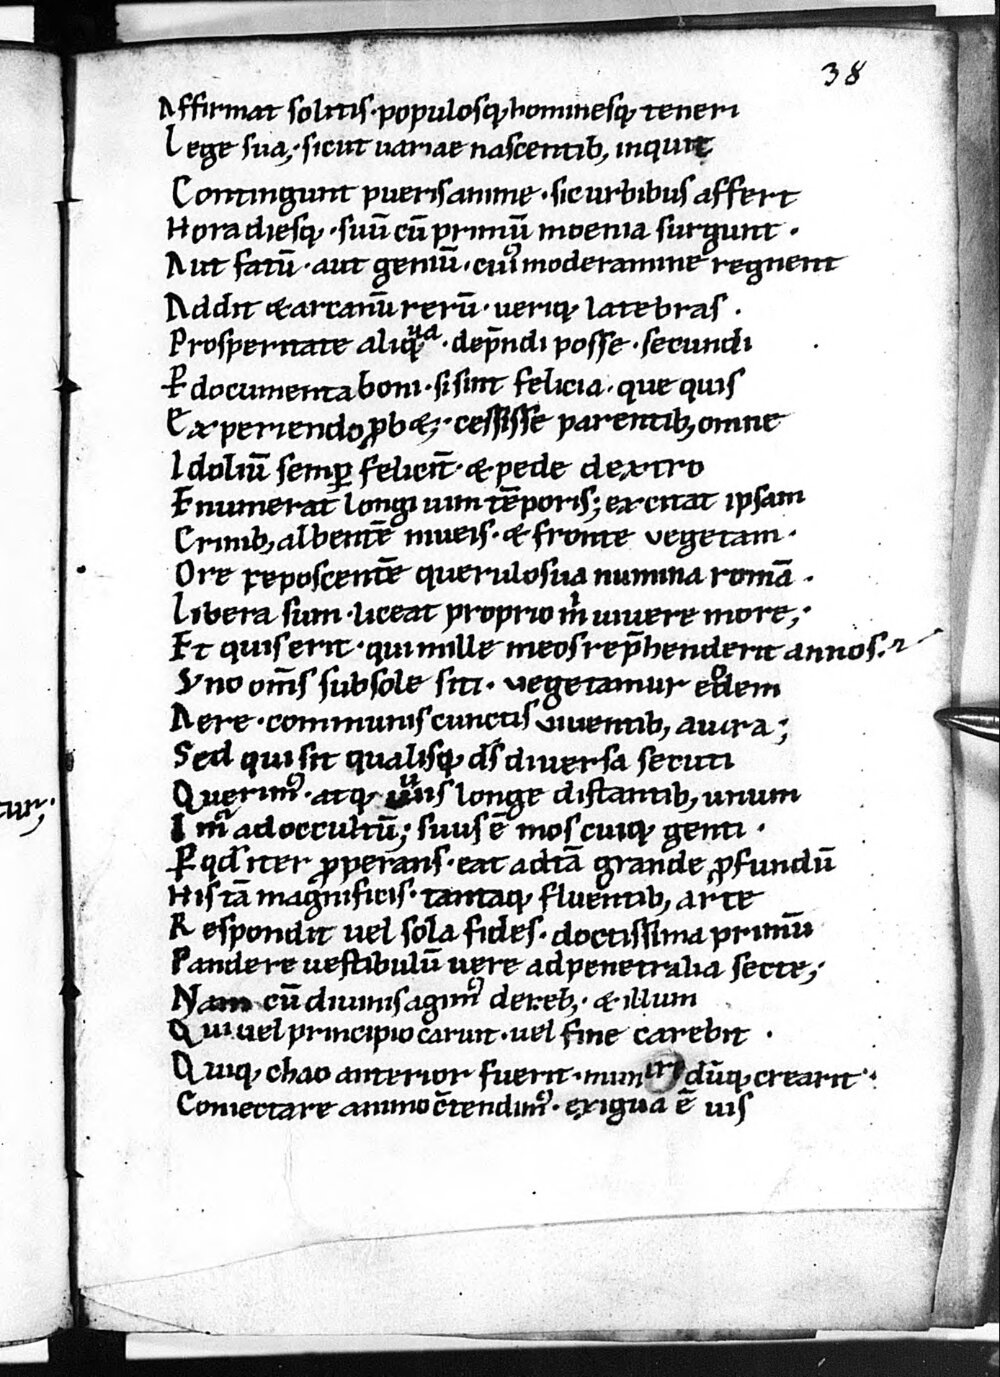 38
Affirmat solitis · populosq; hominesq; teneri
Lege sua; · sicut uariae nascentib; inquit
Contingunt pueris anime · sic urbibus affert
Hora diesq; · suū cū primū moenia surgunt ·
Aut fatū · aut geniū · cuiꝰ moderamine regnent
Addit & arcanū rerū · ueriq; latebras ·
Prosperitate aliqua · dep̄ndi posse · secundi
P̱ documenta boni · si sint felicia · que quis
Experiendo ꝓb&; · cessisse parentib; omne
Idoliū semꝑ felicit̄ · & pede dextro
Enumerat longi uim tēporis; excitat ipsam
Crinib; albentē niueis · & fronte vegetam ·
Ore reposcentē querulo sua numina romā ·
Libera sum · liceat proprio m̍ uiuere more; ·
Et quis erit · qui mille meos rep̄henderit annos ·
Vno om̄s sub sole siti · vegetamur eodem
Aere · communis cunctis viuentib; aura;
Sed qui sit qualisq; d̄s diuersa secuti
Querimꝰ · atq; uiis longe distantib; unum
Imꝰ ad occultū; suus ē mos cuiq; genti ·
Ꝑ qd̄ iter ꝓperans · eat ad tā grande ꝓfundū
His tā magnificis · tantaq; fluentib; arte
Respondit uel sola fides · doctissima primū
Pandere uestibulū uere ad penetralia secte; ·
Nam cū diuinis agimꝰ de reb; · & illum
Qui uel principio caruit · uel fine carebit ·
Quiq; chao anterior fuerit · mundūq; crearit ·
Coniectare animo c̄tendimꝰ · exigua ē uis
tur;